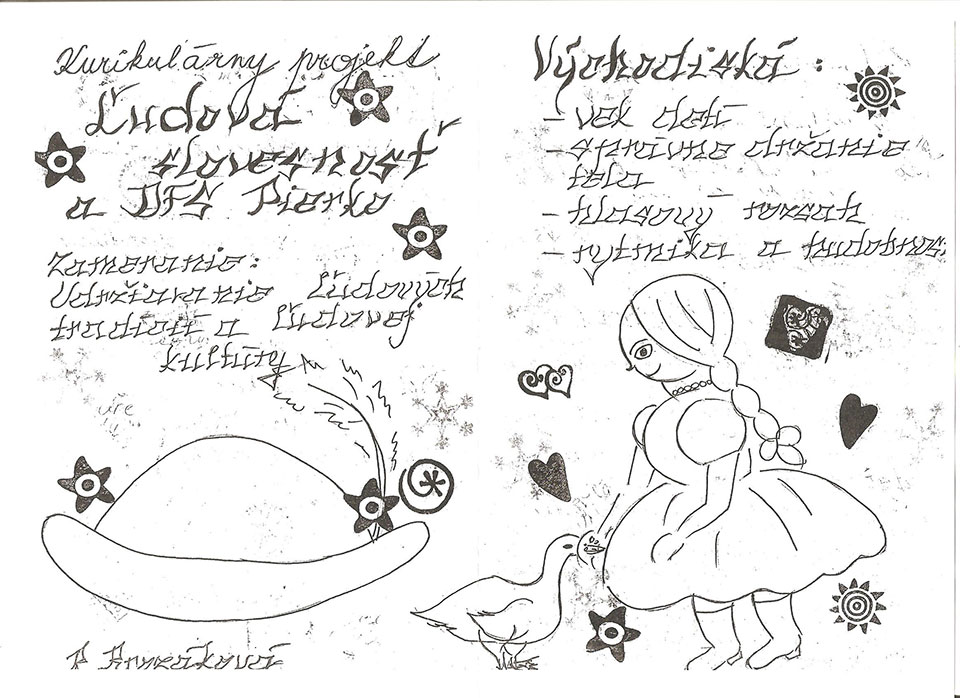 Kurikulárny projekt
Ľudová
slovesnosť
a DFS Pierko
Zameranie:
Udržiavanie ľudových
tradícií a ľudovej
kultúry
P
Východiská:
- vek detí
- správne držanie
tela
- hlasový rozsah
- rytmika a hudobnos